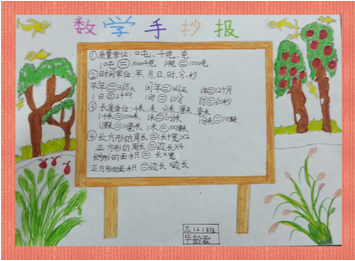 数学手抄报
①质量单位：吨、千克、克
1吨=1000千克 1千克=1000克
②时间单位：年、月、日、时、分、秒
平年=365天 闰年=366天 1年=12个月
1日=24时 1时=60分 1分=60秒
③长度单位：千米、米、分米、厘米、毫米
1千米=1000米 1米=10分米 1分米=10厘米
1厘米=10毫米 1米=100厘米
④长方形的周长=(长+宽)×2
正方形的周长=边长×4
长方形的面积=长×宽
正方形的面积=边长×边长
三(2)班